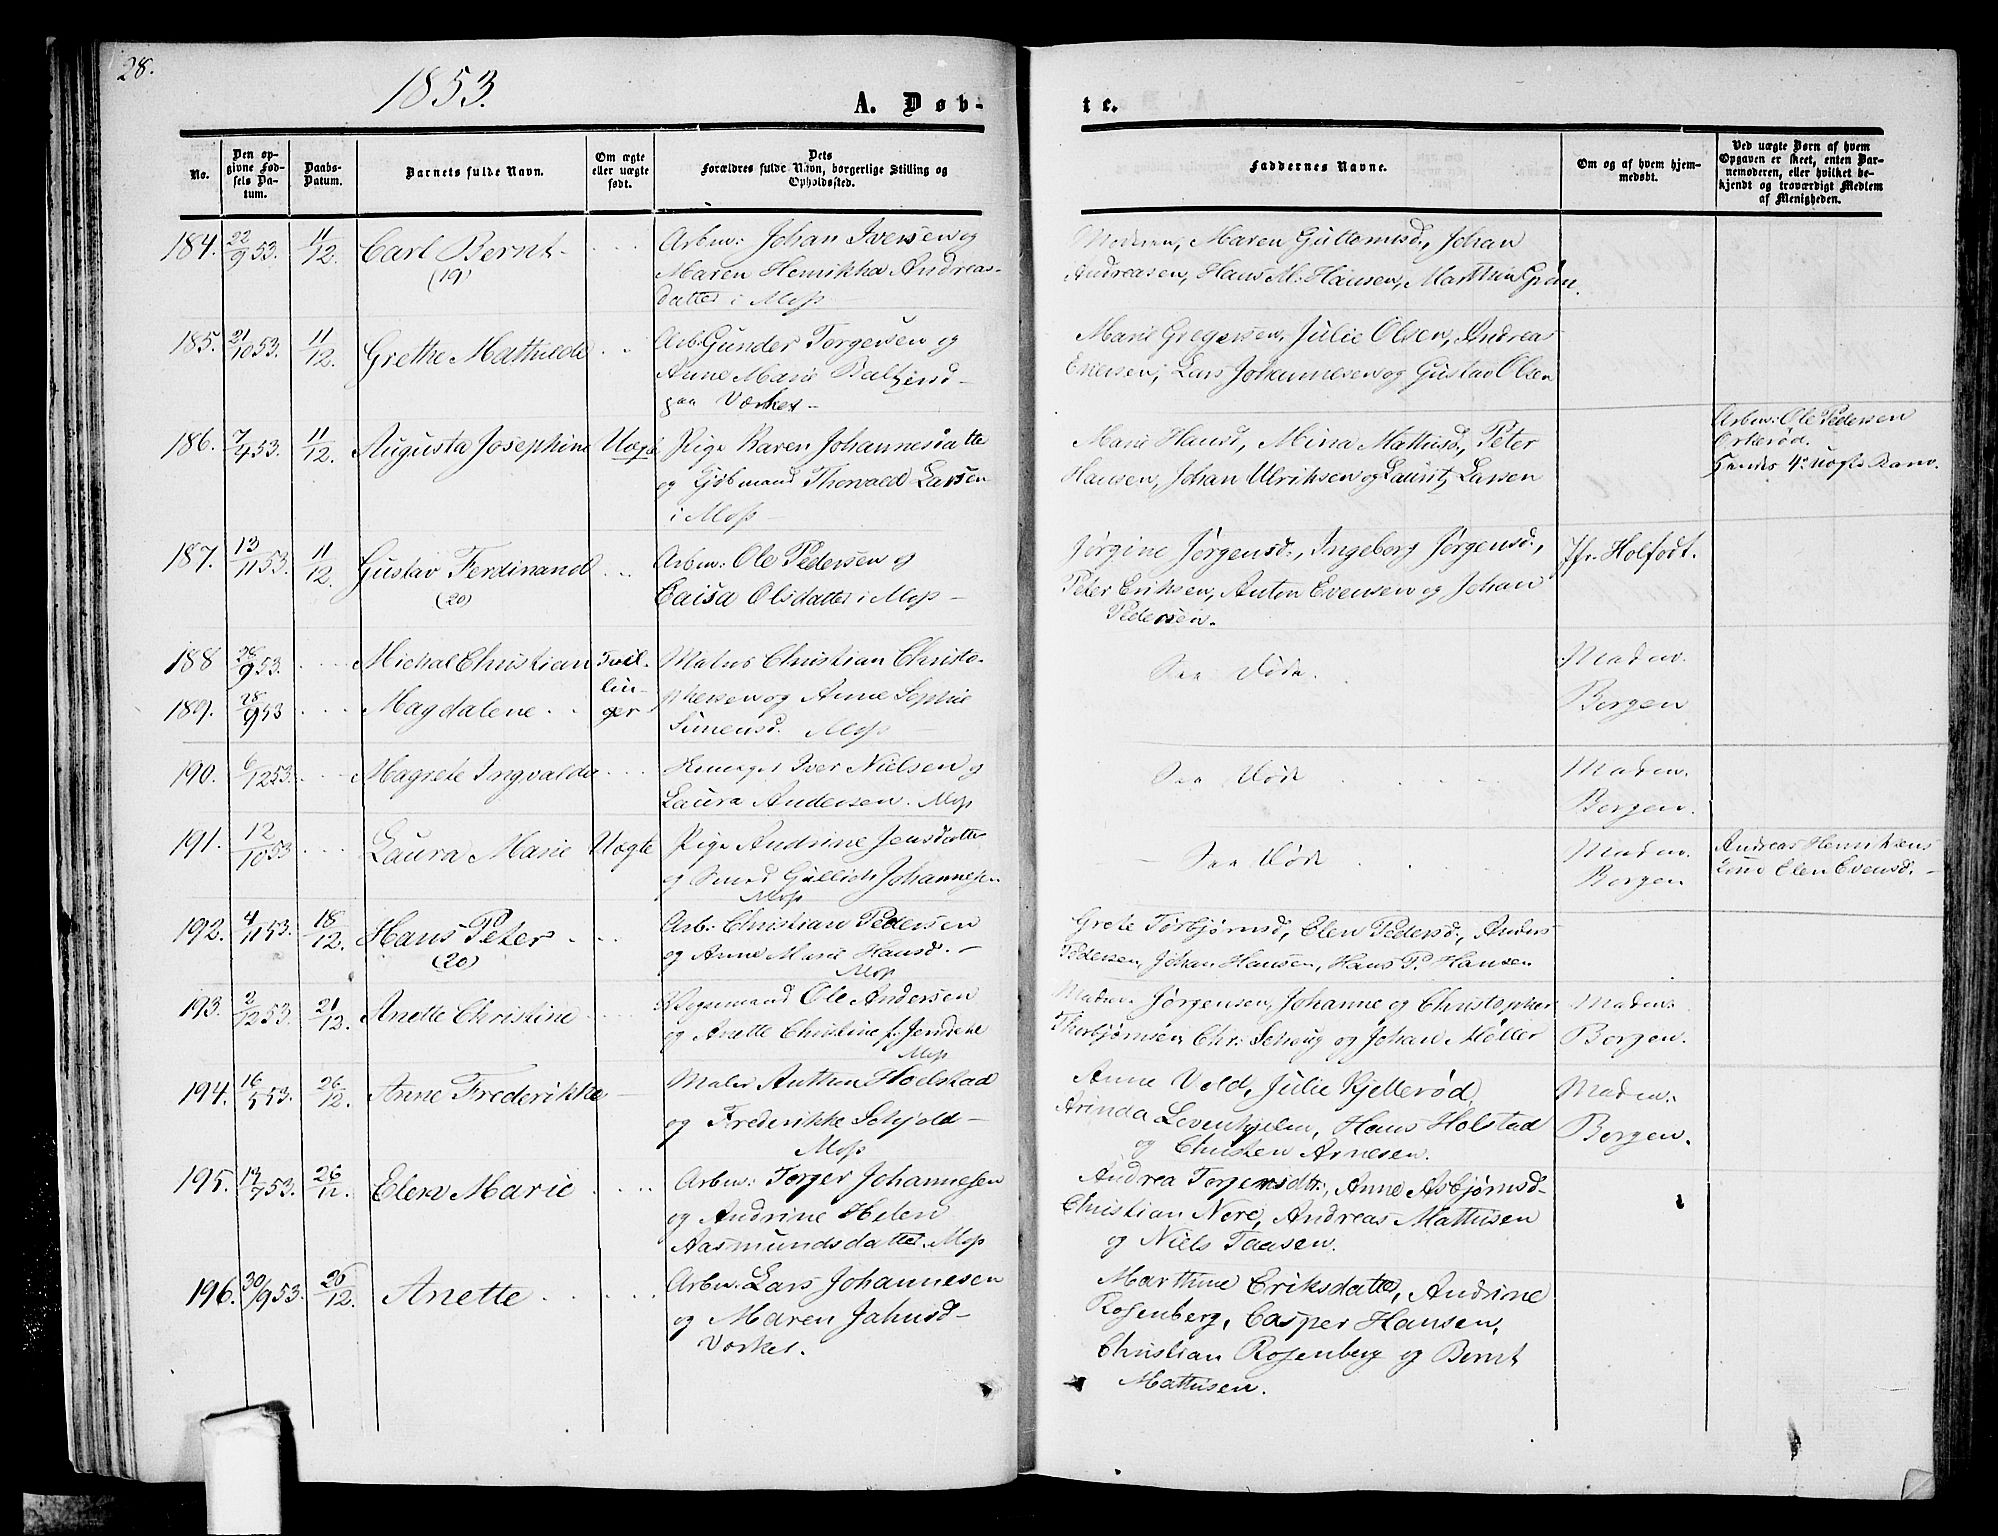 28.
1853.
A. Døb-
te.
No.
Den op-
givne Fød-
sels Da-
tum.
Daabs-
Datum.
Barnets fulde Navn.
Om ægte
eller uægte
født.
Dets
Forældres fulde Navn, borgerlige Stilling og
Opholdssted.
Faddernes Navne.
Om og af hvem hjem-
medøbt.
Ved uægte Børn af hvem
Opgaven er skeet, enten Bar-
nemoderen, eller hvilket be-
kjendt og troværdigt Medlem
af Menigheden.
184. 22/9 53. 11/12. Carl Bernt
(19)
Arbm: Johan Iversen og
Maren Henrikka Andreas-
datter i Moss
Moderen, Maren Guttormsd., Johan
Andreasen, Hans M: Hansen, Marthin Grøn.
185. 21/10 53. 11/12. Grethe Mathilde
Arb: Gunder Torgersen og
Anne Marie Baltzersd
paa Værket
Marie Gregersen, Julie Olsen, Andreas
Evensen, Lars Johannesen og Gustav Olsen
186. 7/4 53. 11/12. Augusta Josephine Uægte
Pige Karen Johannesdatte
og Gjøbmand Thorvald Larsen
i Moss
Marie Hansd, Mina Mathisd., Peter
Hansen, Johan Ulriksen og Lauritz Larsen
Arbm: Ole Pedersen
Orkerød.
187. 13/11 53. 11/12. Gustav Ferdinand
(20)
Arbm: Ole Pedersen og
Caisa Olsdatter i Moss
Jørgine Jørgensd., Ingeborg Jørgensd.,
Peter Eriksen, Anton Evensen og Johan
Pedersen.
Jfr. Holfodt.
188 28/9 53. Michal Christian Tvil-
lin-
ger
Maler Christian Christo-
189. 28/9 53 Magdalene
phersen og Anne Sophie
Simensd. Moss
Saa Døde.
Madm.
Borgen
190. 6/12 53. Magrete Ingvalda
Iver Nielsen og
Laura Andersen. Moss
Saa Døde
Madm.
Borgen.
191. 12/10 53 Laura Marie Uægte
Pige Andrine Jensdatte
og Smed Gullich Johannesen
Moss
Saa Døde
Madm.
Borgen
Andreas Henriksens
Enke Elen Evensd.
192. 4/11 53. 18/12. Hans Peter
(20)
Arb: Christian Pedersen
og Anne Marie Hansd.
Moss
Grete Torbjørnsd, Elen Pedersd., Anders
Pedersen, Johan Hansen, Hans P. Hansen
193. 2/12 53. 21/12. Anette Christine
Ole Andersen
og Anette Christine f. Jensine
Moss
Madm. Jørgensen, Johanne og Christopher
Thorbjørnsen, Chr: Schoug og Johan Møller
Madm:
Borgen.
194. 16/5 53. 26/12. Anne Frederikke
Maler Anthon Hoelstad
og Frederikke Schjold
Moss
Anne Vold, Julie Kjellerød,
Arinda Levenhjelen, Hans Holstad
og Christen Arnesen.
Madm.
Borgen.
195. 13/7 53. 26/12. Elen Marie
Arbm: Torger Johannesen
og Andrine Helen
Aasmundsdatter. Moss
Andrea Torgersdttr:, Anne Asbjørnsd
Christian Nore, Andreas Mathisen
og Niels Taasen.
196. 30/9 53. 26/12. Anette
Arbm. Lars Johannesen
og Maren Jahnsd
Værket.
Marthine Eriksdatter, Andrine
Rosenberg, Casper Hansen,
Christian Rosenberg og Bernt
Mathisen.